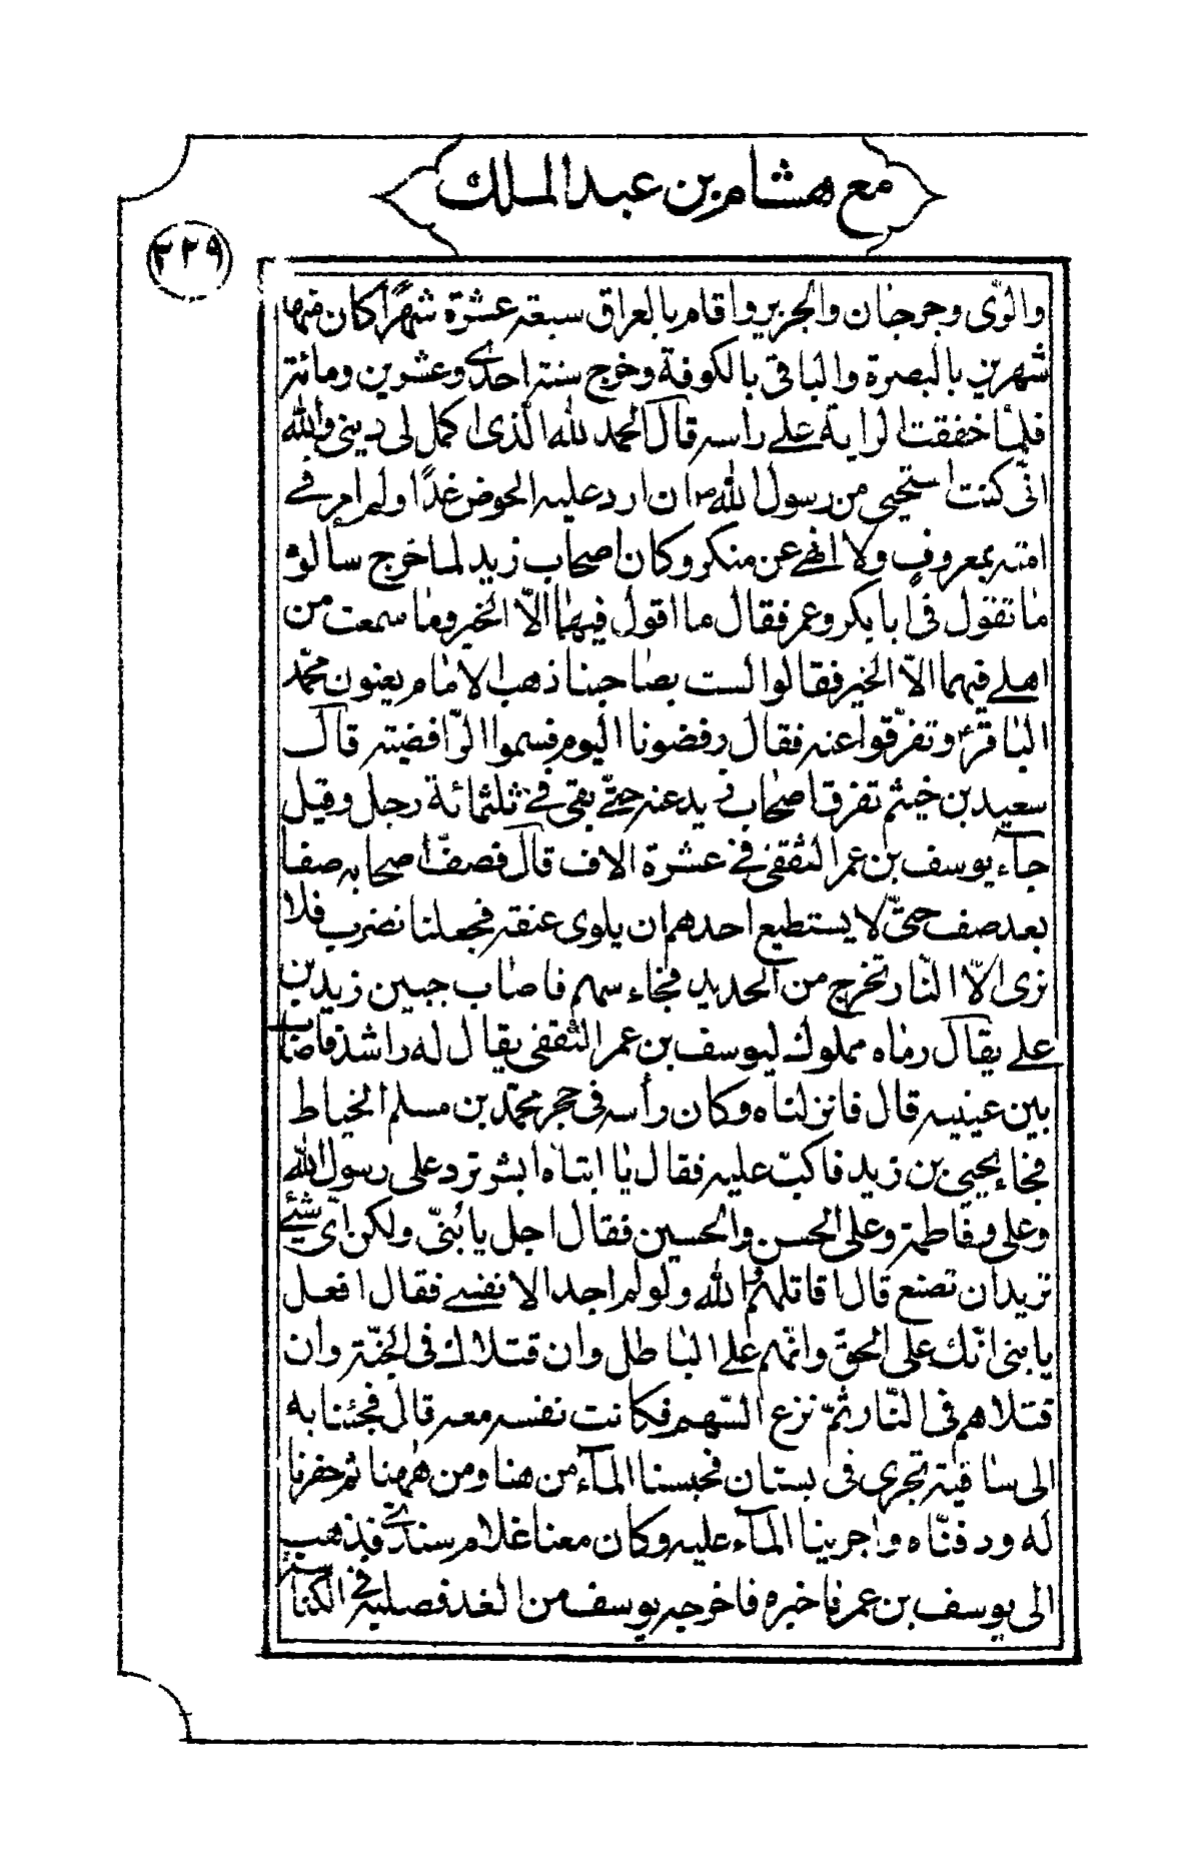 مع هشام بن عبد الملك
٣٢٩
والرّى وجرجان والجزيرو اقام بالعراق سبعة عشرة شهراً كان منها
شهرين بالبصرة والباقى بالكوفة وخرج سنة احدى وعشرين ومائة
فلما خفقت الراية على راسه قال الحمد لله الذى اكمل لى دينى والله
انّى كنت استحيى من رسول الله ص ان ارد عليه الحوض غداً ولم امر فى
امته بمعروفٍ ولا انهى عن منكر وكان اصحاب زيد لما خرج سالوه
ما تقول فى ابا بكر وعمر فقال ما اقول فيهما الاّ الخير وما سمعت من
اهلى فيهما الاّ الخير فقالوا لست بصاحبنا ذهب الامام يعنون محمّد
الباقرؑ وتفرّقوا عنه فقال رفضونا اليوم فسموا الرّافضية قال
سعيد بن خيثم تفرق اصحاب زيد عنه حتّى بقى فى ثلثمائة رجل وقيل
جآء يوسف بن عمر الثقفى فى عشرة الاف قال فصفّ اصحابه صفا
بعد صف حتّى لا يستطيع احدهم ان يلوى عنقه فجعلنا نضرب فلا
نرى الاّ النّار تخرج من الحديد فجاء سهم فاصاب جبين زيد بن
على يقال رماه مملوك ليوسف بن عمر الثقفى يقال له راشد فاصاب
بين عينيه قال فانزلناه وكان رأسه فى حجر محمّد بن مسلم الخياط
فجاء يحيى بن زيد فاكبّ عليه فقال يا ابتاه ابشر ترد على رسول الله
وعلى وفاطمة وعلى الحسن والحسين فقال اجل يا بُنىّ ولكن اىّ شئ
تريد ان تصنع قال اقاتلهم والله ولو لم اجد الا نفسى فقال افعل
يا بنى انّك على الحقّ وانّهم على الباطل وان قتلاك فى الجنّة وان
قتلاهم فى النّار ثمّ نزع السّهم فكانت نفسه معه قال فجئنا به
الى ساقية تجرى فى بستان فحبسنا المآء من هنا ومن ههنا ثم حفرنا
له ودفنّاه واجرينا المآء عليه وكان معنا غلام سندىّ فذهب
الى يوسف بن عمر فاخبره فاخرجه يوسف من الغد فصلبه فى الكناسة